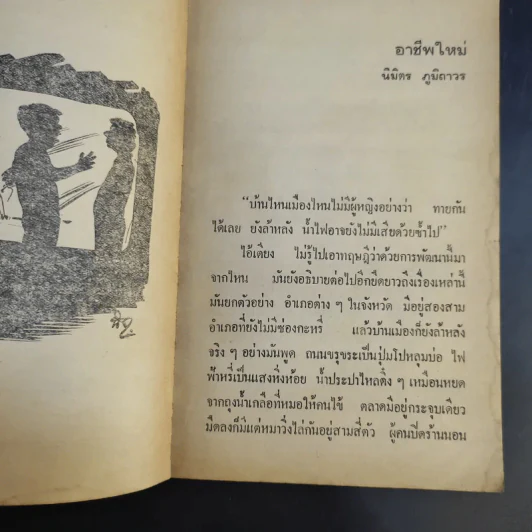 อาชีพใหม่
นิมิตร ภูมิถาวร
“บ้านไหนเมืองไหนไม่มีผู้หญิงอย่างว่า ทายกัน
ได้เลย ยังล้าหลัง น้ำไฟอาจยังไม่มีเสียด้วยซ้ำไป”
ไอ้เตี่ยง ไม่รู้ไปเอาทฤษฎีว่าด้วยการพัฒนานี้มา
จากไหน มันยังอธิบายต่อไปอีกยืดยาวถึงเรื่องเหล่านี้
มันยกตัวอย่าง อำเภอต่าง ๆ ในจังหวัด มีอยู่สองสาม
อำเภอที่ยังไม่มีซ่องกะหรี่ แล้วบ้านเมืองก็ยังล้าหลัง
จริง ๆ อย่างมันพูด ถนนขรุขระเป็นปุ่มโปหลุมบ่อ ไฟ
ฟ้าหรี่เป็นแสงหิ่งห้อย น้ำประปาไหลติ๋ง ๆ เหมือนหยด
จากถุงน้ำเกลือที่หมอให้คนไข้ ตลาดมีอยู่กระจุบเดียว
มืดลงก็มีแต่หมาวิ่งไล่กันอยู่สามสี่ตัว ผู้คนปิดร้านนอน